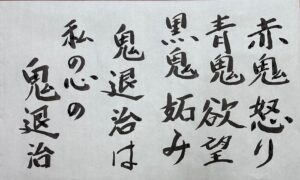 赤鬼怒り
青鬼欲望
黒鬼妬み
鬼退治は
私の心の
鬼退治